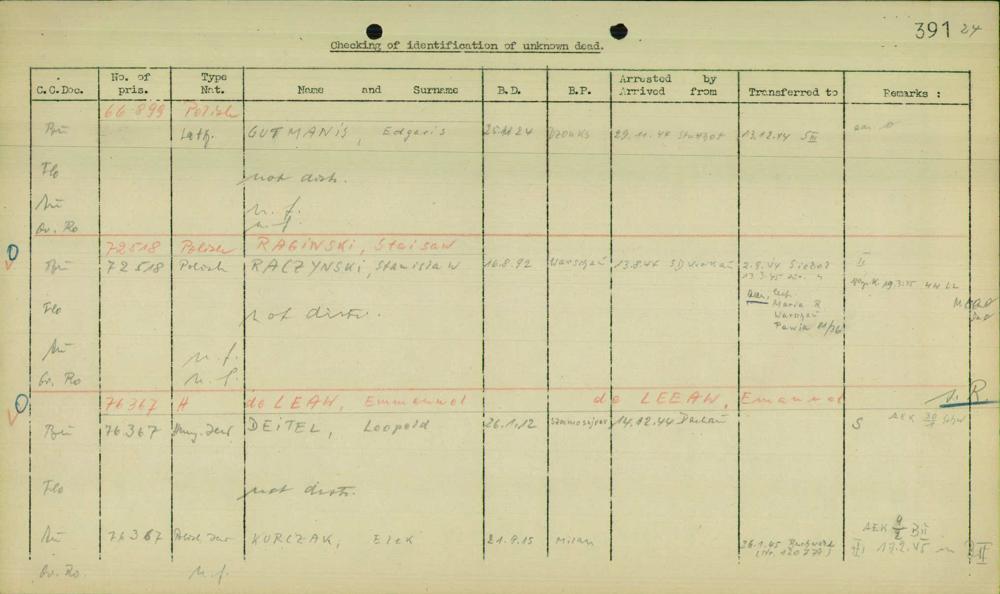 391 24
Checking of identification of unknown dead.
C.C.Doc. No. of pris. Type Nat. Name and Surname B.D. B.P. Arrested by Arrived from Transferred to Remarks :
66 899 Polish
Bu Lett. GUTMANIS, Edgaris 29.11.44 Stutthof 13.12.44 SIII
Flo not distr.
Au n. f.
Gr. Ro n. f.
72518 Polish RAGINSKI, Staisaw
Bu 72518 Polish RACZYNSKI, Stanislaw 16.8.92 Warschau 13.8.44 SD 2.9.44 II
13.3.45
19.3.45
Flo not distr. Maria R
Warschau
Pawia
Au n. f.
Gr. Ro n. f.
76367 H de LEAW, Emmanuel de LEEAW, Emanuel s. R
Bu 76367 Ung. Jew DEITEL, Leopold 26.1.12 Szamosujvar 14.12.44 Dachau S AEK
Flo not distr.
Au 76367 Polish Jew KURCZAK, Elek 21.9.15 Milan 26.1.45 Buchwald AEK 9/2 BII
(Nr. 120774) III 17.2.45
Gr. Ro. n. f.